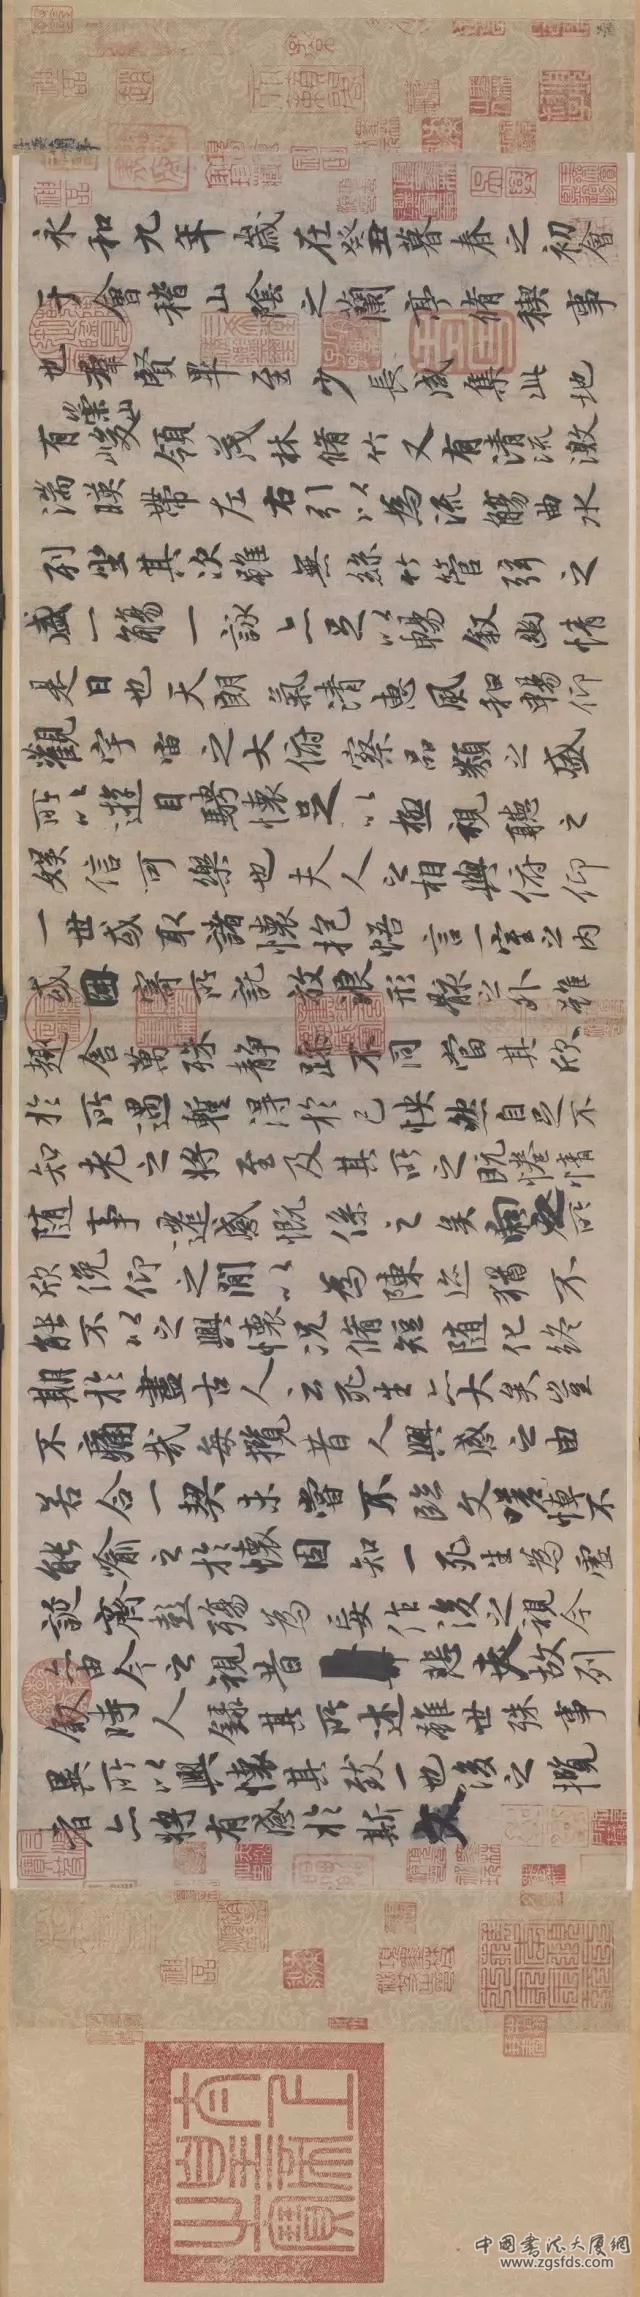 永和九年歲在癸丑暮春之初會
于會稽山陰之蘭亭脩禊事
也羣賢畢至少長咸集此地
有崇山峻領茂林脩竹又有清流激
湍暎帶左右引以為流觴曲水
列坐其次雖無絲竹管弦之
盛一觴一詠亦足以暢敘幽情
是日也天朗氣清惠風和暢仰
觀宇宙之大俯察品類之盛
所以遊目騁懷足以極視聽之
娛信可樂也夫人之相與俯仰
一世或取諸懷抱悟言一室之內
或因寄所託放浪形骸之外雖
趣舍萬殊靜躁不同當其欣
於所遇蹔得於己怏然自足不
知老之將至及其所之既惓情
隨事遷感慨係之矣向之所
欣俛仰之閒以為陳迹猶不
能不以之興懷況脩短隨化終
期於盡古人云死生亦大矣豈
不痛哉每攬昔人興感之由
若合一契未嘗不臨文嗟悼不
能喻之於懷固知一死生為虛
誕齊彭殤為妄作後之視今
亦由今之視昔悲夫故列
敘時人錄其所述雖世殊事
異所以興懷其致一也後之攬
者亦將有感於斯文
中國書法大厦網
www.zgsfds.com